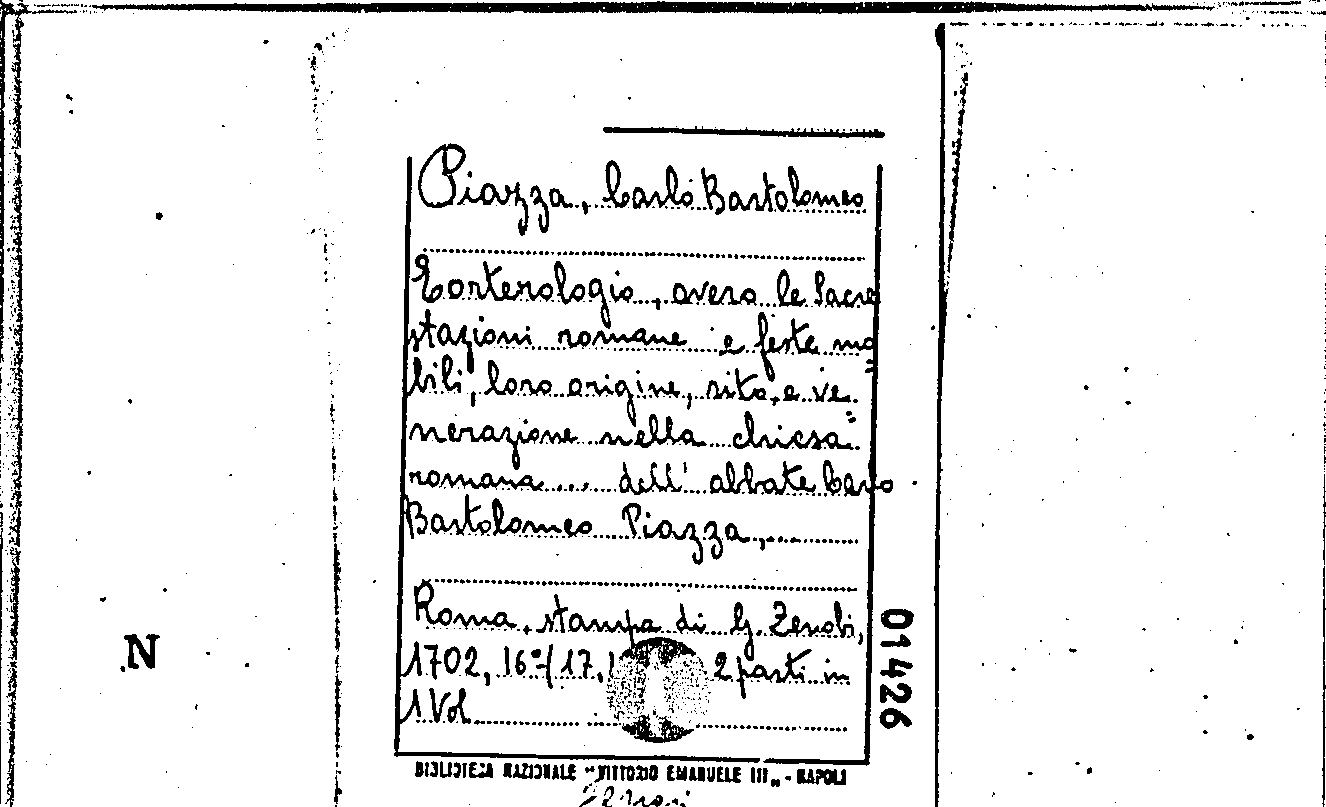 Piazza, Carlo Bartolomeo
Eorterologio, overo le Sacre
stazioni romane e feste mo=
bili, loro origine, sito, e ve=
nerazione nella chiesa
romana ... dell' abbate Carlo
Bartolomeo Piazza,...
Roma, stampa di G. Zenobi,
1702, 16º (17, 2 parti in
1 Vol.
01426
N
BIBLIOTECA NAZIONALE "VITTORIO EMANUELE III" - NAPOLI